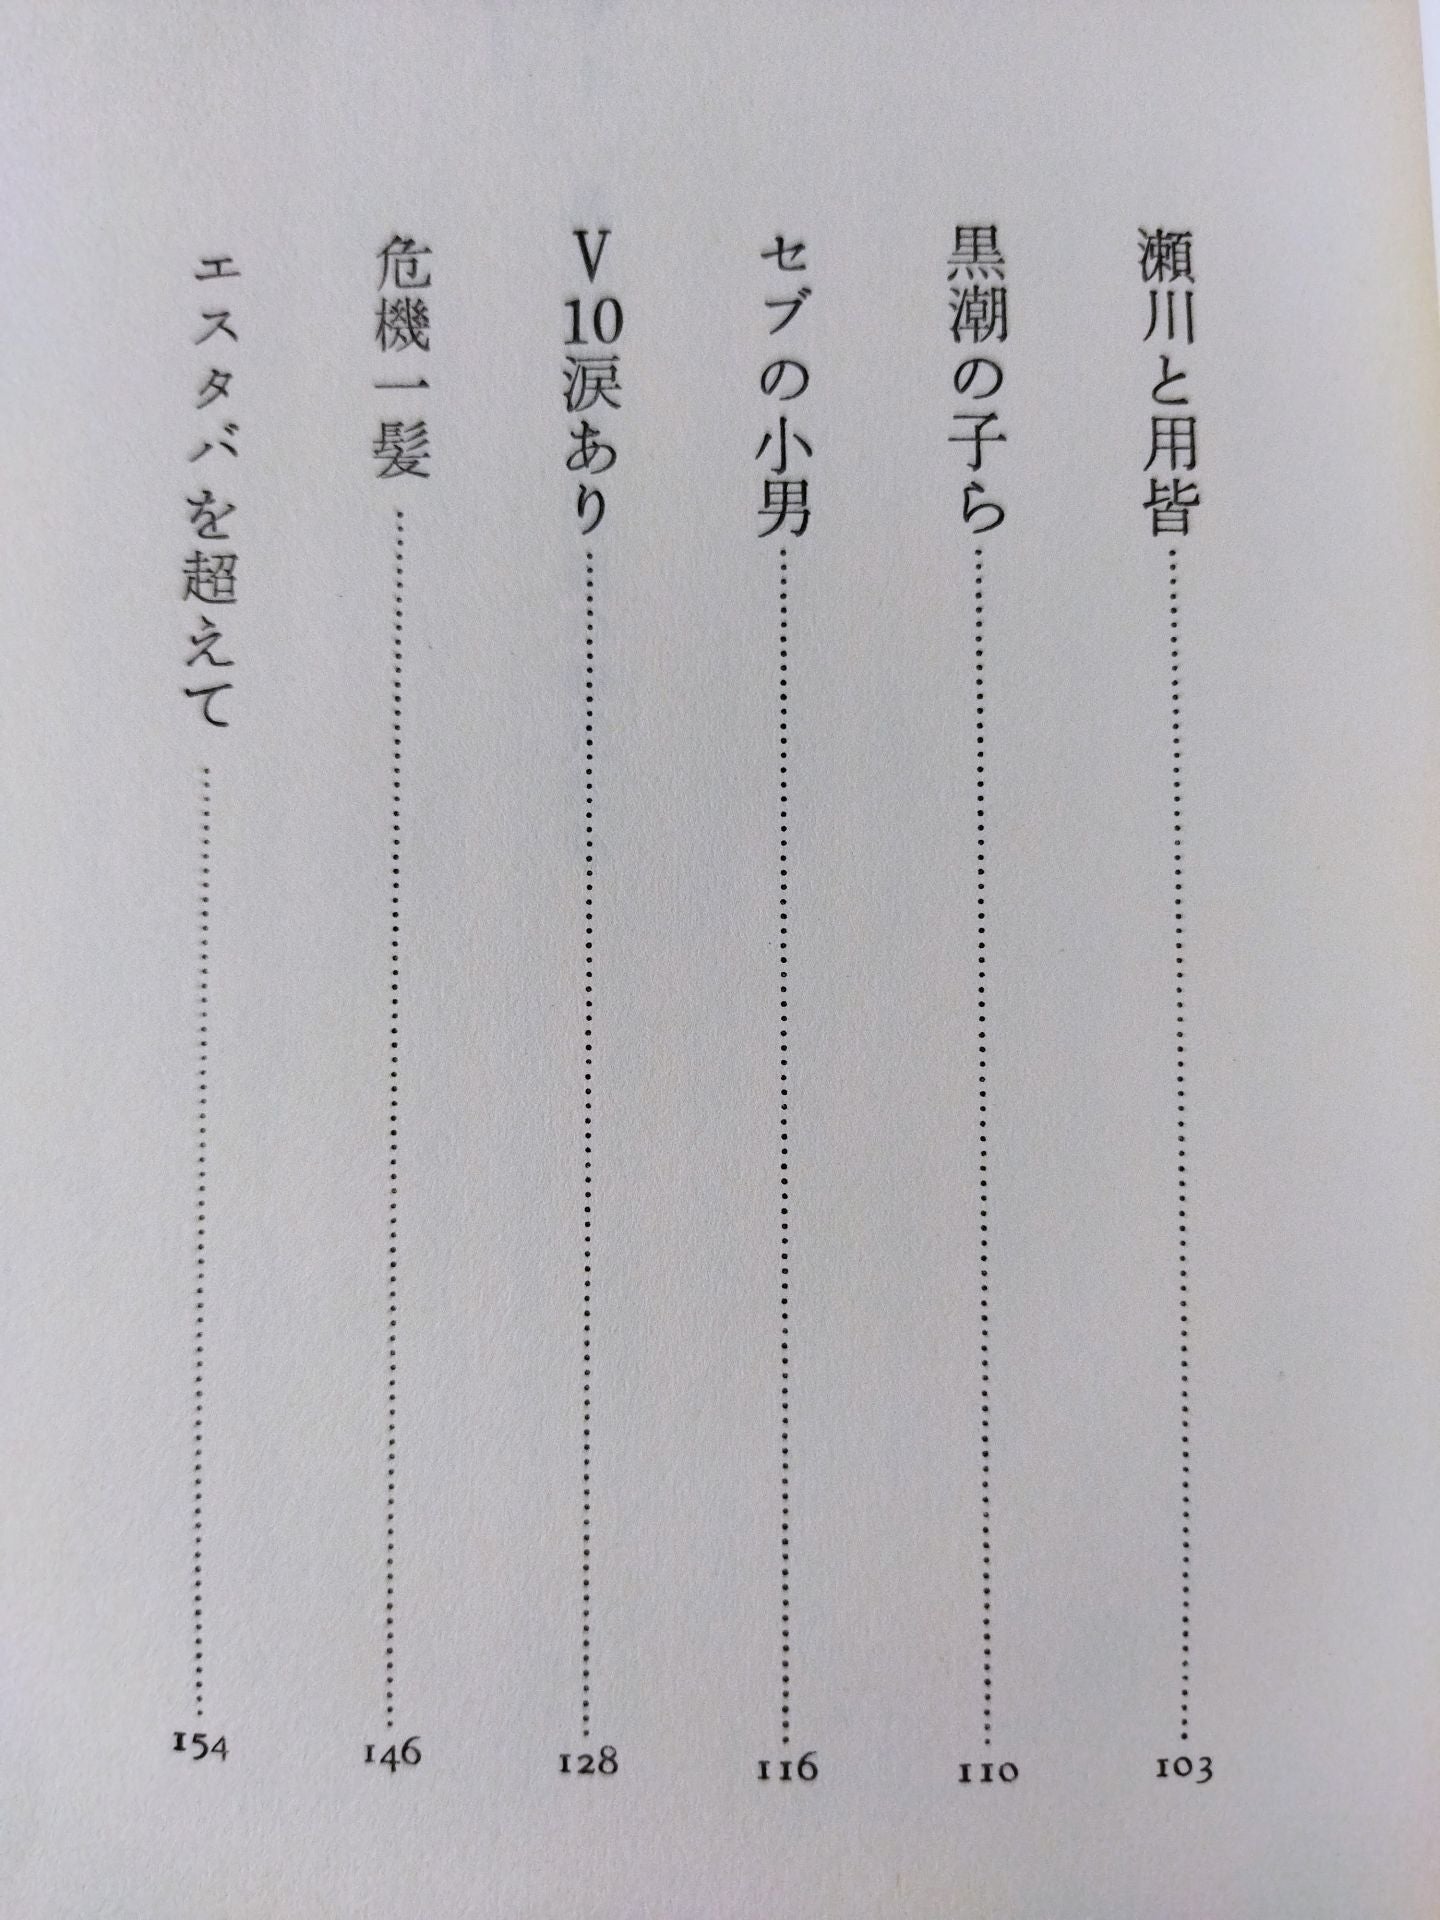 瀬川と用皆……………………103
黒潮の子ら……………………110
セブの小男……………………116
V10涙あり……………………128
危機一髪……………………146
エスタバを超えて……………………154